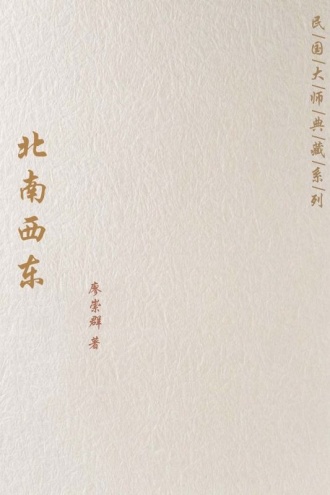 民|国|大|师|典|藏|系|列
北南西东
廖崇群 著